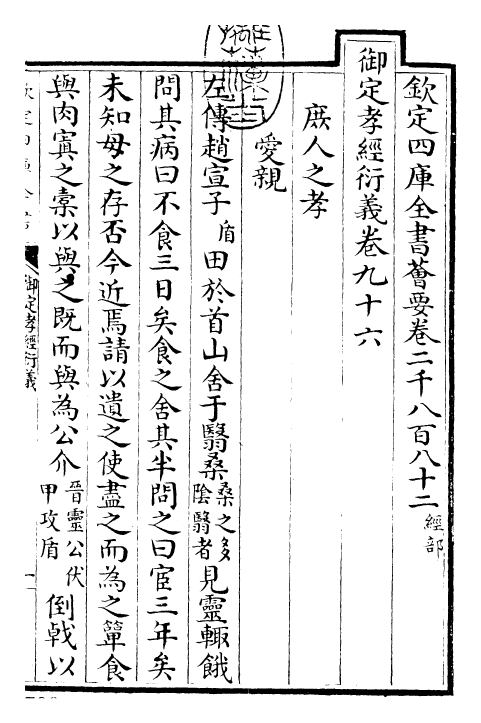 欽定四庫全書薈要卷二千八百八十二經部
御定孝經衍義卷九十六
庶人之孝
愛親
左傳趙宣子盾田於首山舍于翳桑桑之多陰翳者見靈輒餓
問其病曰不食三日矣食之舍其半問之曰宦三年矣
未知母之存否今近焉請以遺之使盡之而為之簞食
與肉寘之橐以與之既而與為公介晉靈公伏甲攻盾倒戟以
御定孝經衍義
一